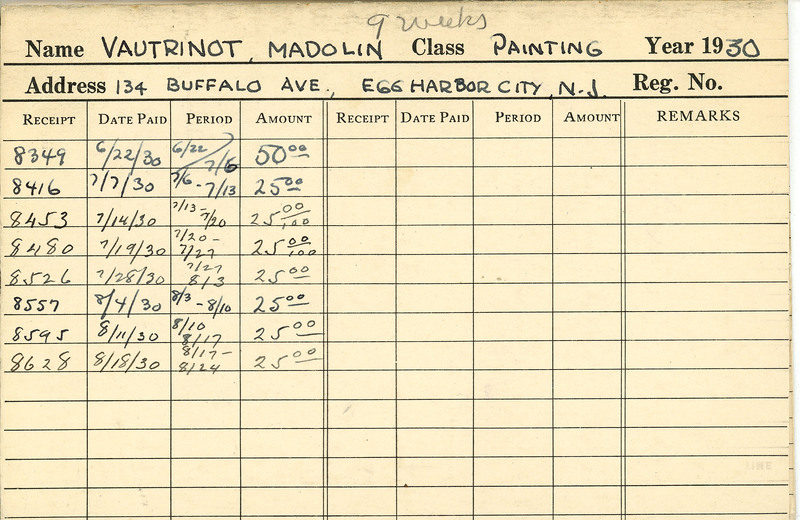 9 weeks
Name VAUTRINOT, MADOLIN Class PAINTING Year 1930
Address 134 BUFFALO AVE., EGG HARBOR CITY, N.J. Reg. No.
RECEIPT DATE PAID PERIOD AMOUNT RECEIPT DATE PAID PERIOD AMOUNT REMARKS
8349 6/22/30 6/22 7/6 50 00
8416 7/7/30 7/6 - 7/13 25 00
8453 7/14/30 7/13 - 7/20 25 00/100
8480 7/19/30 7/20 - 7/27 25 00/100
8526 7/28/30 7/27 8/3 25 00
8557 8/4/30 8/3 - 8/10 25 00
8595 8/11/30 8/10 8/17 25 00
8628 8/18/30 8/17 - 8/24 25 00